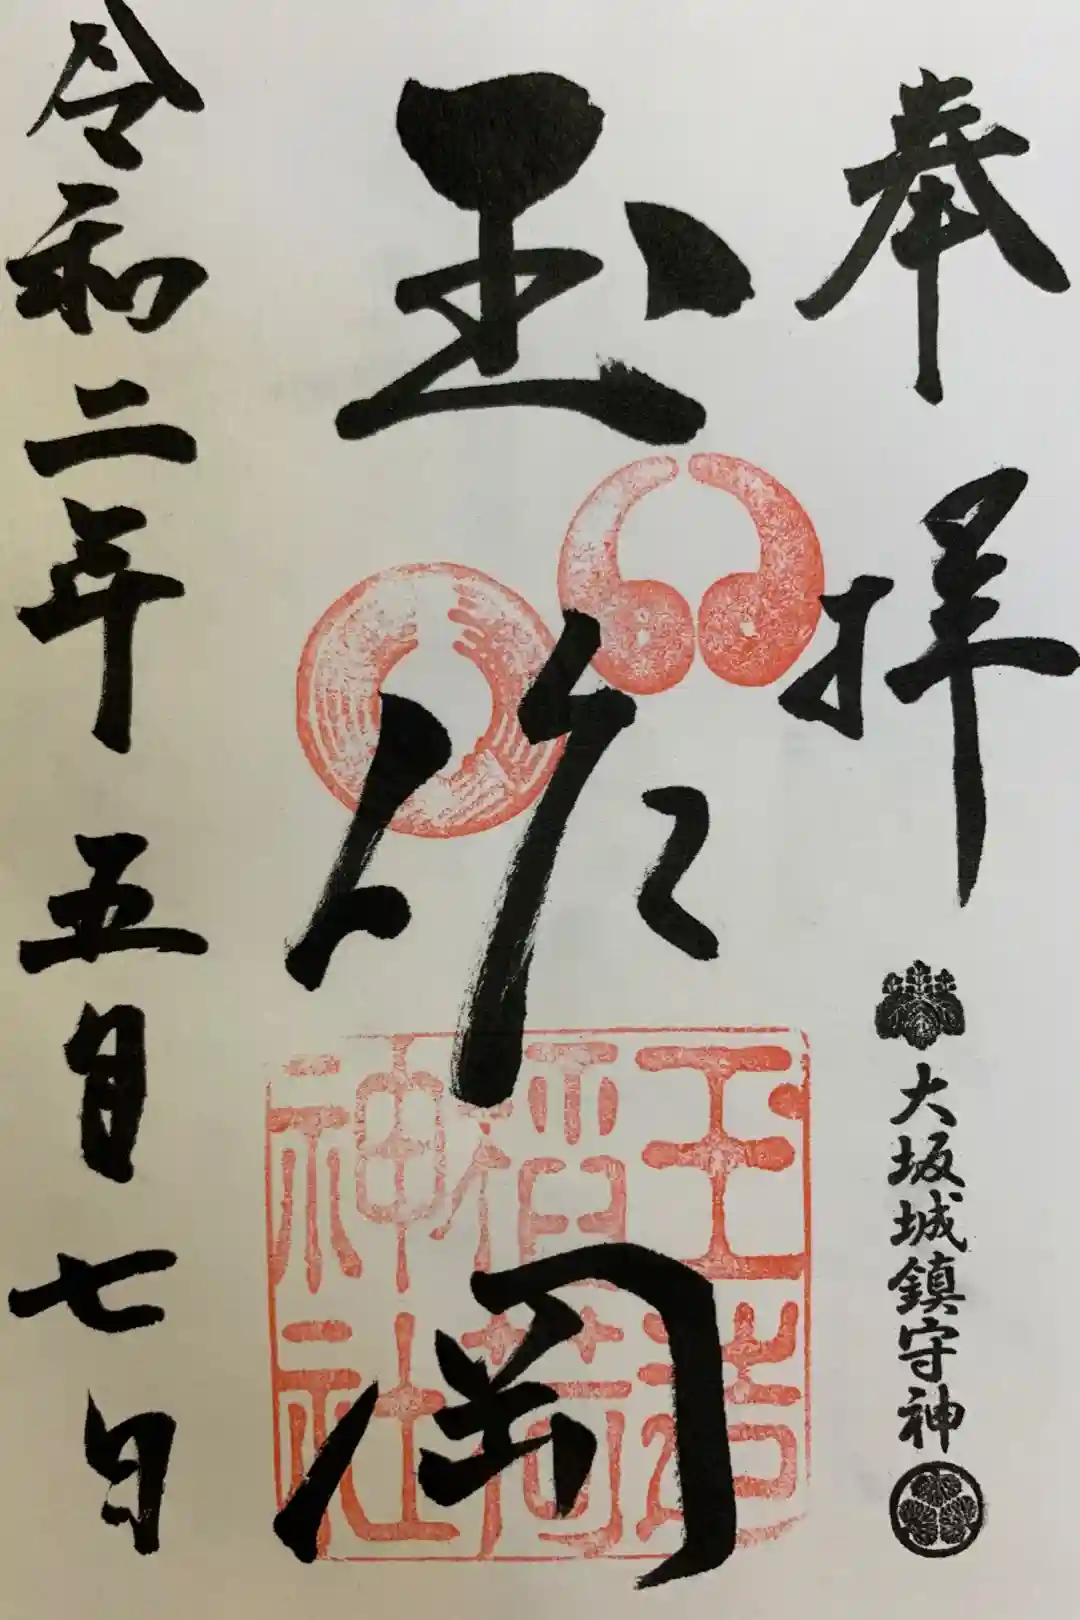 奉拝
大坂城鎮守神
玉作岡
玉造
稲荷
神社
令和二年五月七日